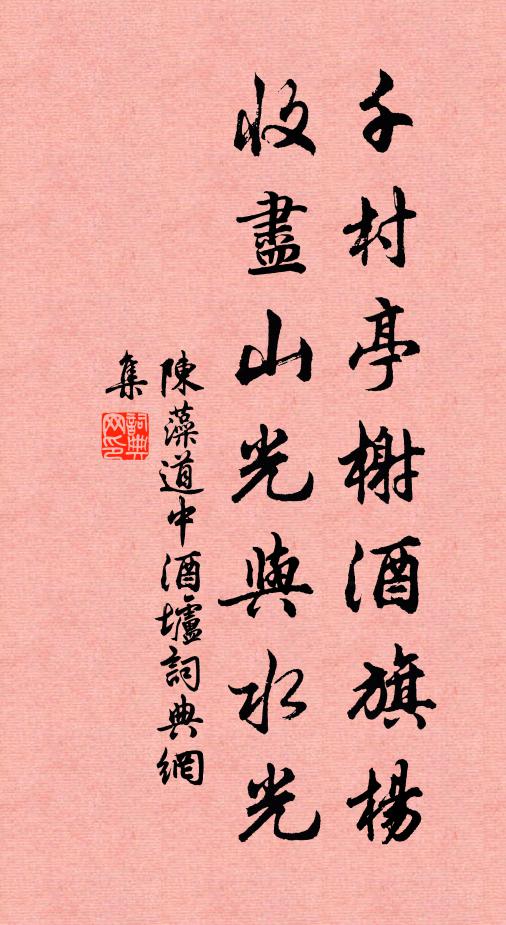 千村亭榭酒旗楊
收盡山光與水光
陳藻道中酒壚詞典網
集
詞典
网印